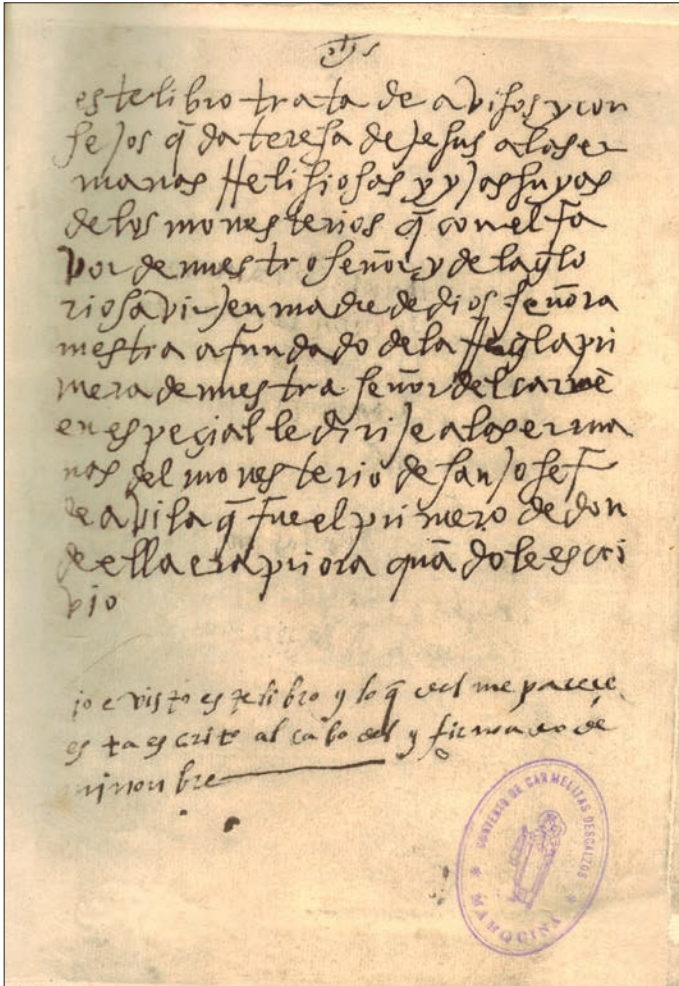 jhs
este libro trata de avisos y con
sejos q̄ da teresa de jesus a las er
manas rrelisiosas y yjas suyas
de los monesterios q̄ con el fa
vor de nuestro señor y de la glo
riosa virjen madre de dios señora
nuestra a fundado de la rregla pri
mera de nuestra señora del carmē
en espeçial le dirije a las erma
nas del monesterio de san josef
de avila q̄ fue el primero de don
de ella era priora quādo le escri
vio
jo e visto este libro y lo q̄ del me pareçe
esta escrito al cabo del y firmado de
mi nonbre
CONVENTO DE CARMELITAS DESCALZOS
* MARQUINA *